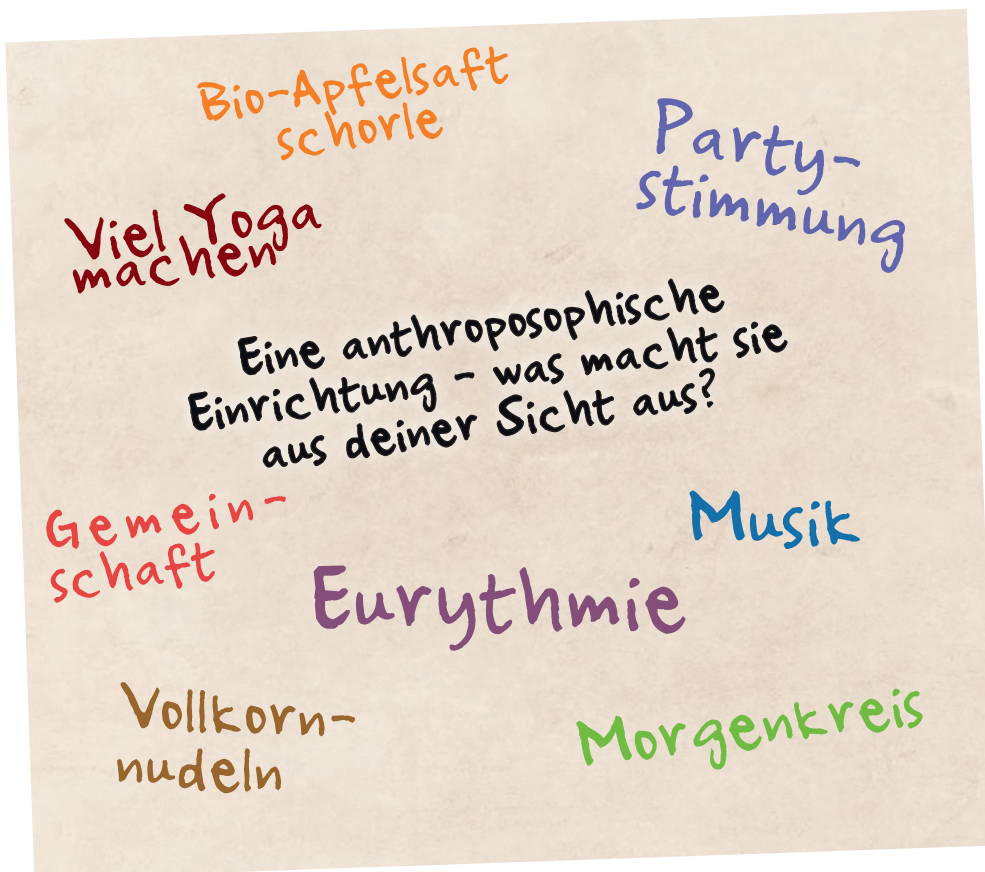 Bio-Apfelsaft
schorle
Party-
stimmung
Viel Yoga
machen
Eine anthroposophische
Einrichtung - was macht sie
aus deiner Sicht aus?
Gemein-
schaft
Musik
Eurythmie
Vollkorn-
nudeln
Morgenkreis